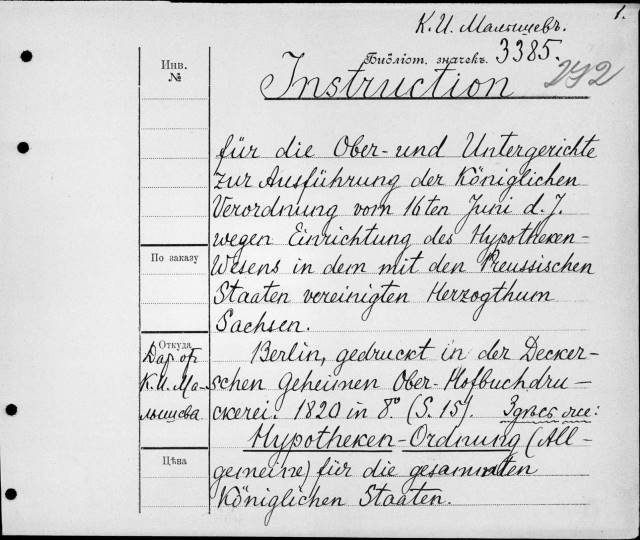 1.
К. И. Малышевъ.
Библіот. значекъ. 3385.
292
Инв.
№
Instruction
für die Ober- und Untergerichte
zur Ausführung der Königlichen
Verordnung vom 16ten Juni d. J.
wegen Einrichtung des Hypotheken-
Wesens in dem mit den Preussischen
Staaten vereinigten Herzogthum
Sachsen.
По заказу
Откуда
Дар от
К. И. Ма-
лышева
Berlin, gedruckt in der Decker-
schen Geheimen Ober-Hofbuchdru-
ckerei. 1820 in 8º. (S. 15). Здѣсь же:
Hypotheken-Ordnung (All-
gemeine) für die gesammten
Königlichen Staaten.
Цѣна